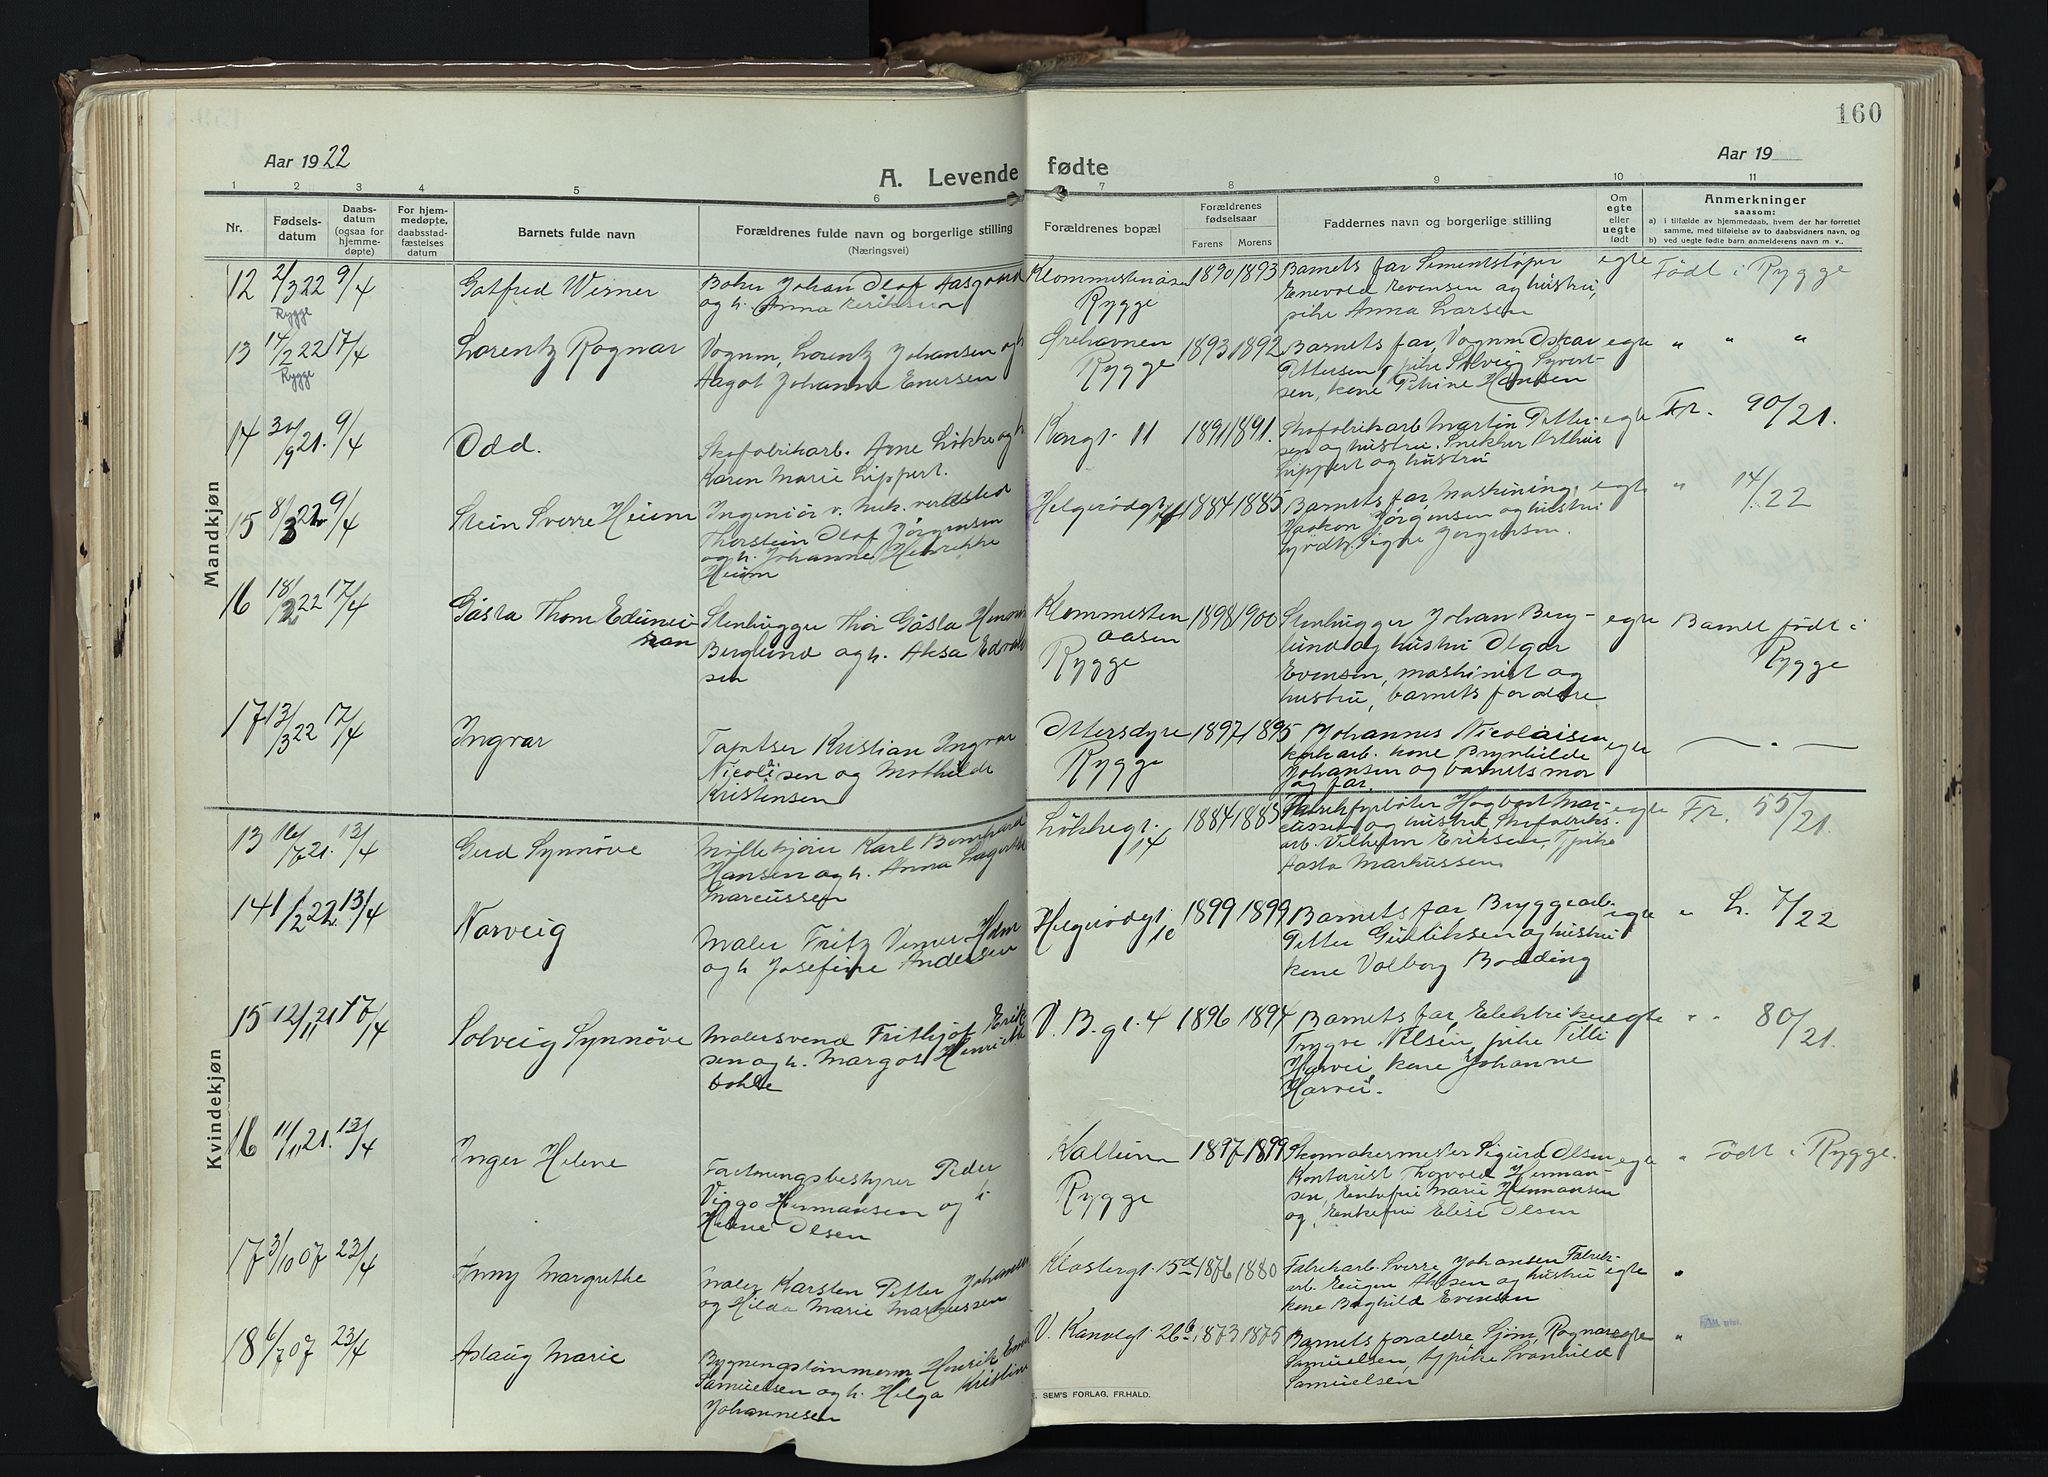 160
Aar 1922
Aar 19
A. Levende fødte
1 2 3 4 5 6 7 8 9 10 11
Nr.
Fødsels-
datum
Daabs-
datum
(ogsaa for
hjemme-
døpte)
For hjem-
medøpte,
daabsstad-
fæstelses
datum
Barnets fulde navn
Forældrenes fulde navn og borgerlige stilling
(Næringsvei)
Forældrenes bopæl
Forældrenes
fødselsaar
Farens Morens
Faddernes navn og borgerlige stilling
Om
egte
eller
uegte
født
Anmerkninger
saasom:
a) i tilfælde av hjemmedaab, hvem der har forrettet
samme, med tilføielse av to daabsvidners navn, og
b) ved uegte fødte barn anmelderens navn m. v..
Mandkjøn
12 2/3 22 9/4 Gotfred Werner
Rygge
Johan Olof Aasgaard
og h. Anna
Rygge
1890 1893
Barnets far
Enevold Evensen og hustru,
pike Anna Larsen
egte Født i Rygge
13 14/2 22 17/4 Lorentz Ragnar
Rygge
Vognm. Lorentz Johansen og h
Aagot Johanne Enersen
Ørehavnen
Rygge
1893 1892
Barnets far, Vognm Oskar
Pettersen, pike Solveig Syvert-
sen, kone Petrine Hansen
egte " " "
14 30/9 21. 9/4 Odd.
Skofabrikarb. Arne Løkke og h
Karen Marie Lippert.
Kongt. 11 1891 1891.
Skofabrikarb Martin Petter-
sen og hustru. Snekker Arthur
Lippert og hustru
egte Fr. 90/21.
15 8/3 22 9/4 Stein Sverre Heium
Ingeniør v. mek. verksted
Thorstein Olof Jørgensen
og h. Johanne Henrikke
Heium
Helgerødgt 1884 1885
Barnets far, Maskining.
Haakon Jørgensen og hustru
Signe Jørgensen.
egte " 14/22
16 18/2 22 17/4 Gösta Thom
Stenhugger Thor Gösta
Berglund og h. Aksa
sen
aasen
Rygge
1898 1900
Stenhugger Johan Berg-
lund og hustru Olgar
Evensen, maskinist og
hustru, barnets foraldre
egte Barnet født i
Rygge
17 13/3 22 17/4 Ingvar
Kristian Ingvar
Nicolaisen og Mathilde
Kristensen
Rygge
1897 1895
Johannes Nicolaisen
kone Brynhilde
Johansen og barnets mor
og far.
egte — " —
Kvindekjøn
13 16/7 21. 13/4 Gerd Synnøve
Møllekjører Karl
Hansen og h. Anna
Marcussen
Løkkegt. 14 1884 1885
Hagbart Mar-
cussen og hustru Skofabriks-
arb. Vilhelm Eriksen, pike
Aasta Markussen
egte Fr. 55/21.
14 1/2 22 13/4 Norveig
Maler Fritz Verner Holm
og h. Josefine Andersen
Helgerødgt. 1c 1899 1899
Barnets far Bryggearb.
Petter Gulliksen og hustru
kone Valborg Bodding
egte " L. 7/22
15 12/11 21 17/4 Solveig Synnøve
Malersvend Frithjof Erik-
sen og h. Margot Henriette
Dohle
V. B. gt. 4 1896 1894
Barnets far, Elektriker
Trygve Nilsen, pike Tilli
Harvei, kone Johanne
Harvei.
egte " " 80/21.
16 11/11 21. 13/4 Inger Helene
Forretningsbestyrer Peder
Viggo Hermansen og h.
Helene Olsen
Kallum
Rygge
1897 1899
Skomakermester Sigurd Olsen
Kontorist Thorvald Herman-
sen, Enkefru Marie Hermansen
og, Enkefru Elise Olsen
egte " Født i Rygge.
17 3/10 07 23/4 Anny Margrethe
Maler Karsten Petter Johansen
og Hilda Marie Markussen
Klostergt. 15a 1876 1880
Fabrikarb. Sverre Johansen Fabrik-
arb. Eugen Olsen og hustru
kone Borghild Evensen
egte "
18 6/7 07 23/4 Aslaug Marie
Bygningstømmerm Henrik
Samuelsen og h. Helga Kristine
Johannesen
V. Kanalgt. 26b 1873 1875
Barnets foraldre Sjøm. Ragnar
Samuelsen, og pike Svanhild
Samuelsen
egte "
SEM'S FORLAG, FR.HALD.